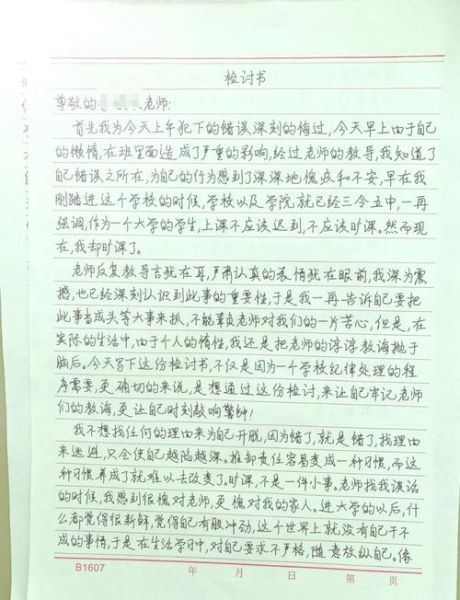 检讨书
尊敬的 老师:
首先我为今天上午犯下的错误深刻的悔过,今天早上由于自己
的懒惰,在班里面造成了严重的影响,经过老师的教导,我知道了
自己错误之所在,为自己的行为感到了深深地愧疚和不安,早在我
刚踏进这个学校的时候,学校以及学院,就已经三令五申,一再
强调,作为一个大学的学生,上课不应该迟到,不应该旷课。然而现
在,我却旷课了。
老师反复教导言犹在耳,严肃认真的表情犹在眼前,我深为震
撼,也已经深刻认识到此事的重要性,于是我一再告诉自己要把
此事当成头等大事来抓,不能辜负老师对我们的一片苦心,但是,在
实际的生活中,由于个人的惰性,我还是把老师的谆谆教诲抛于
脑后。今天写下这份检讨书,不仅是因为一个学校纪律处理的程
序需要,更确切的来说,是想通过这份检讨,来让自己牢记老师
们的教诲,更让自己时刻敲响警钟!
我不想找任何的理由来为自己开脱,因为错了,就是错了,找理由
来逃避,只会使自己越陷越深。推卸责任容易变成一种习惯,而这
种习惯养成了就难以去改变了。旷课,不是一件小事。老师找我谈话
的时候,我感到很愧对老师,更愧对我的家人。进大学的以后,什
么都觉得很新鲜,觉得自己有股冲动,这个世界上就没有自己干不
成的事情,于是在生活学习中,对自己要求不严格,随意放纵自己。像
B1607 年 月 日 第 页